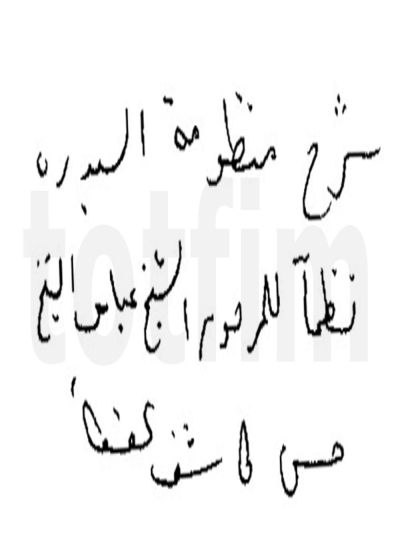 شرح منظومة الدره
نظماً للمرحوم الشيخ عباس الشيخ
حسن كاشف الغطاء
totfim